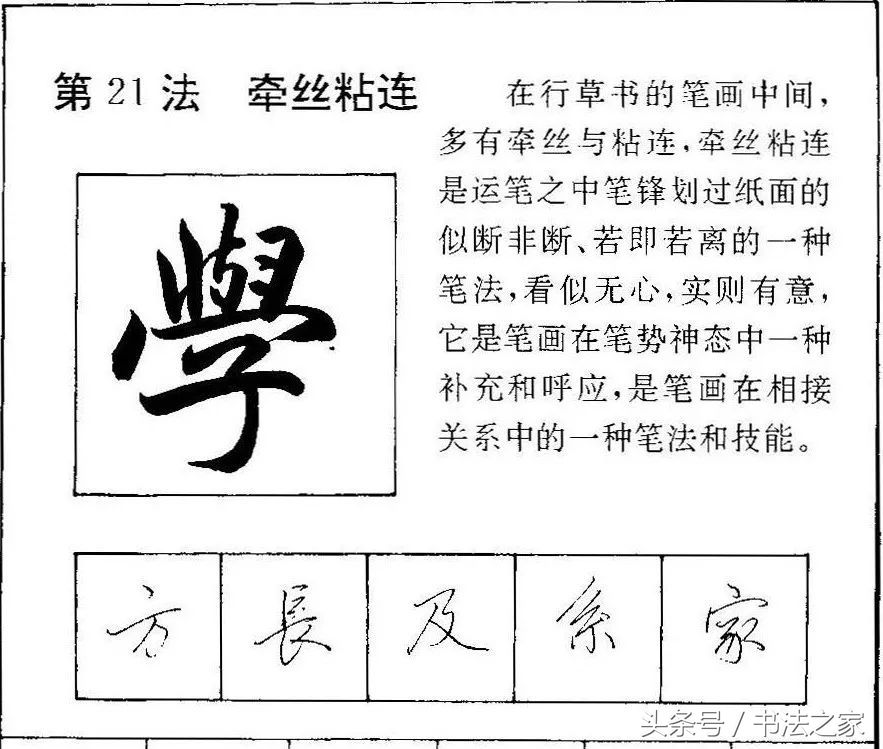 第21法 牵丝粘连
在行草书的笔画中间，
多有牵丝与粘连，牵丝粘连
是运笔之中笔锋划过纸面的
似断非断、若即若离的一种
笔法，看似无心，实则有意，
它是笔画在笔势神态中一种
补充和呼应，是笔画在相接
关系中的一种笔法和技能。
學
方 長 及 系 家
头条号 / 书法之家